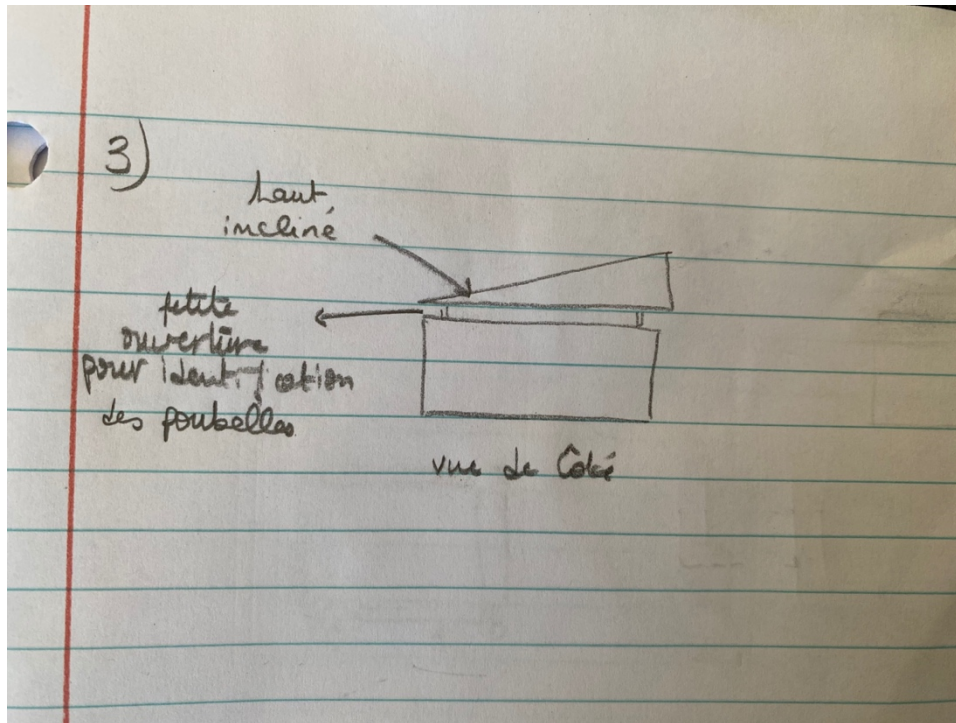 3)
haut
incliné
petite
ouverture
pour identification
des poubelles
vue de Côté